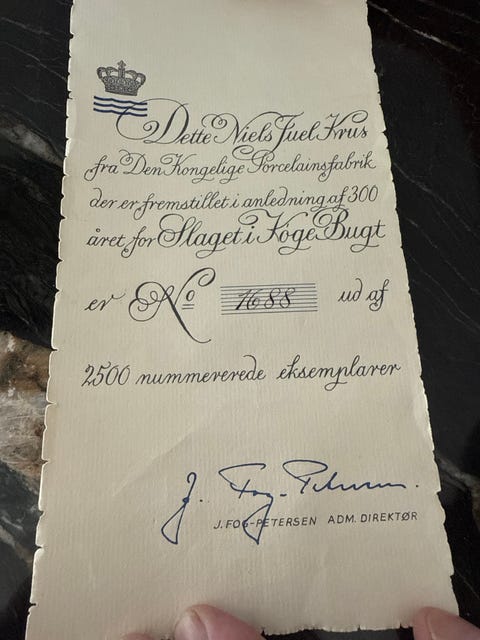 Dette Niels Juel Krus
fra Den Kongelige Porcelainsfabrik
der er fremstillet i anledning af 300
året for Slaget i Köge Bugt
er No 1688 ud af
2500 nummererede eksemplarer
J. Fog-Petersen.
J. FOG-PETERSEN ADM. DIREKTØR